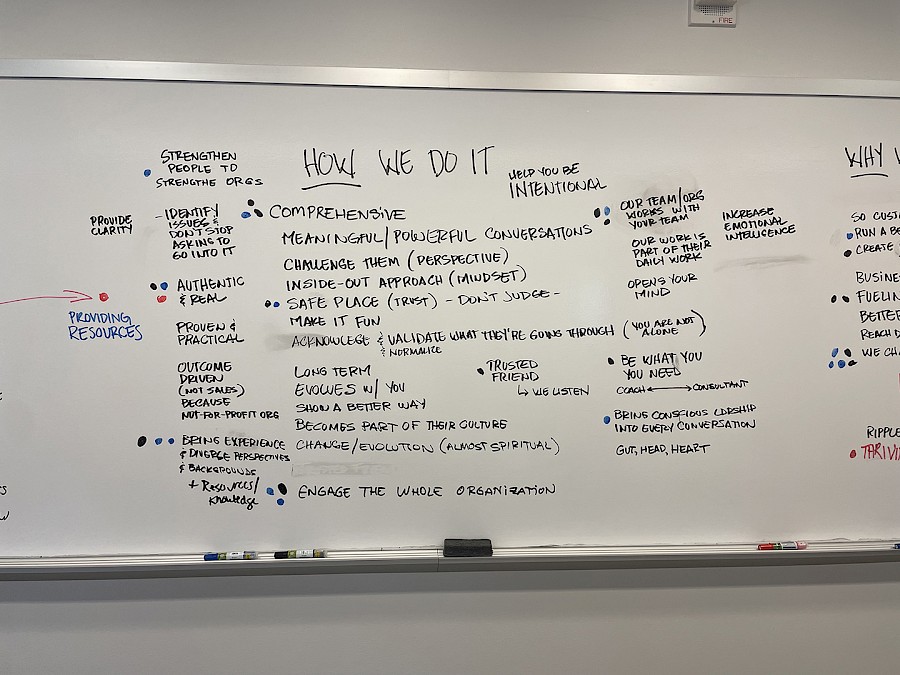 FIRE
HOW WE DO IT
HELP YOU BE
INTENTIONAL
STRENGTHEN
PEOPLE TO
STRENGTHE ORGS
PROVIDE
CLARITY
- IDENTIFY
ISSUES &
DON'T STOP
ASKING TO
GO INTO IT
AUTHENTIC
& REAL
PROVIDING
RESOURCES
PROVEN &
PRACTICAL
OUTCOME
DRIVEN
(NOT SALES)
BECAUSE
NOT-FOR-PROFIT ORG
BRING EXPERIENCE
& DIVERGE PERSPECTIVES
& BACKGROUNDS
+ Resources/
Knowledge
COMPREHENSIVE
MEANINGFUL/POWERFUL CONVERSATIONS
CHALLENGE THEM (PERSPECTIVE)
INSIDE-OUT APPROACH (MINDSET)
SAFE PLACE (TRUST) - DON'T JUDGE -
MAKE IT FUN
ACKNOWLEGE & VALIDATE WHAT THEY'RE GOING THROUGH (YOU ARE NOT
ALONE)
& NORMALIZE
LONG TERM
EVOLVES W/ YOU
SHOW A BETTER WAY
BECOMES PART OF THEIR CULTURE
CHANGE/EVOLUTION (ALMOST SPIRITUAL)
ENGAGE THE WHOLE ORGANIZATION
TRUSTED
FRIEND
↳ WE LISTEN
OUR TEAM/ORG
WORKS WITH
YOUR TEAM
OUR WORK IS
PART OF THEIR
DAILY WORK
OPENS YOUR
MIND
INCREASE
EMOTIONAL
INTELLIGENCE
BE WHAT YOU
YOU NEED
COACH ↔ CONSULTANT
BRING CONSCIOUS LDRSHIP
INTO EVERY CONVERSATION
GUT, HEAD, HEART
WHY
SO CUST
RUN A BE
CREATE
BUSINE
FUELIN
BETTER
REACH D
WE CHA
RIPPLE
THRIVI